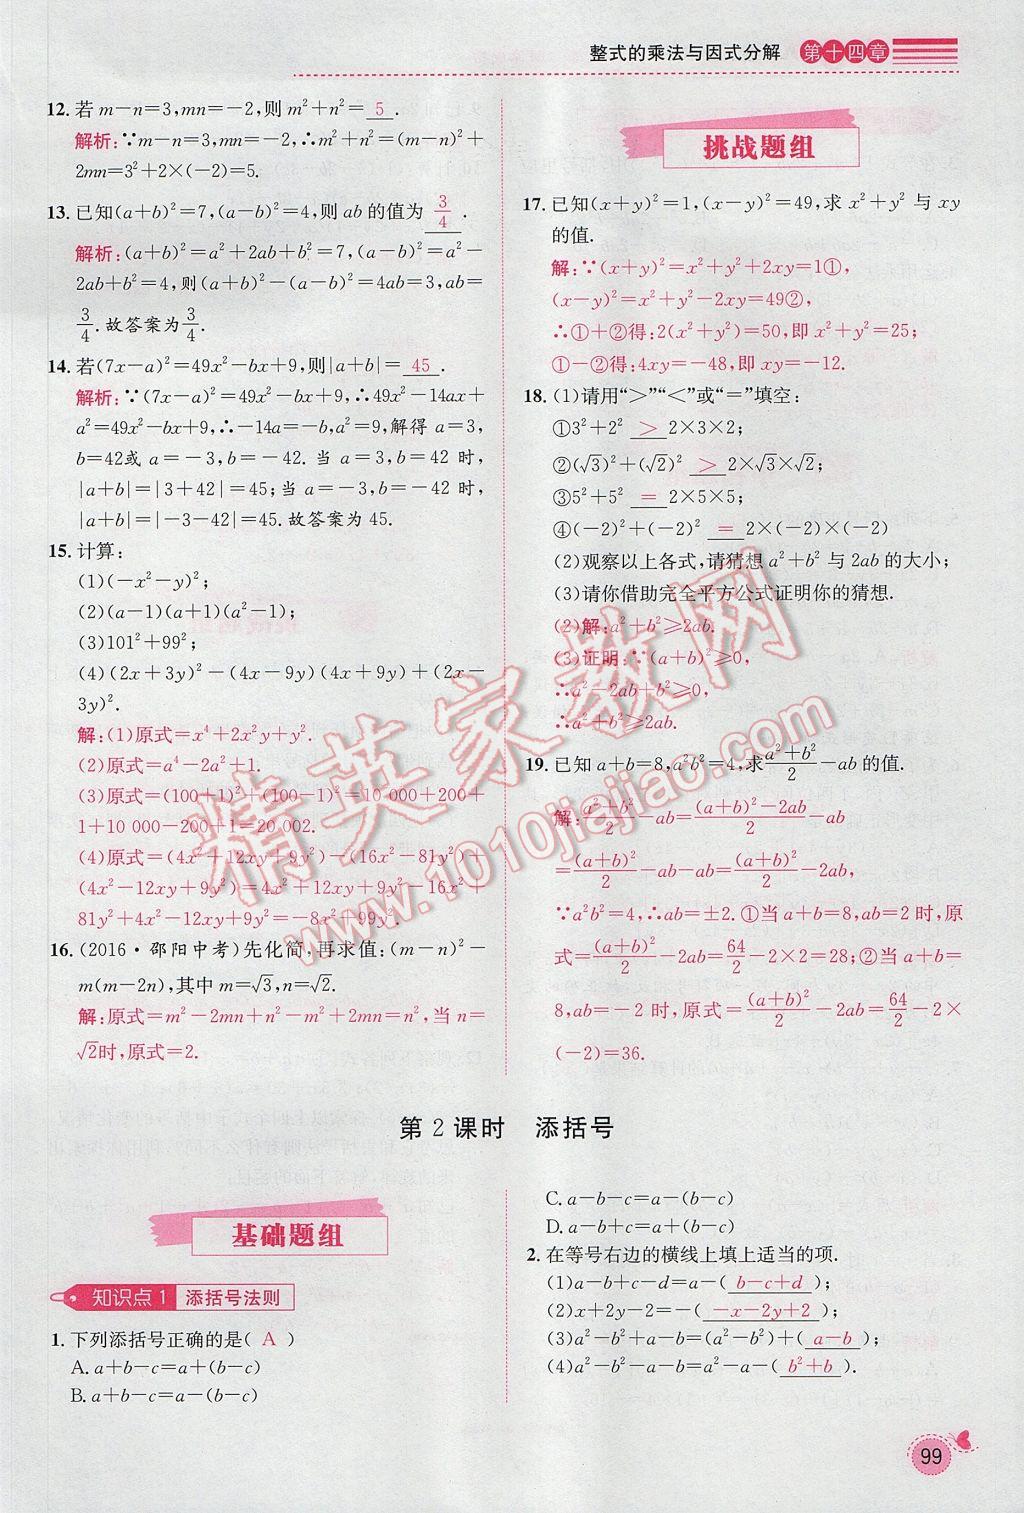 整式的乘法与因式分解 第十四章
12. 若m−n=3,mn=−2,则m²+n²= 5 .
解析:∵m−n=3,mn=−2,∴m²+n²=(m−n)²+
2mn=3²+2×(−2)=5.
13. 已知(a+b)²=7,(a−b)²=4,则ab的值为 3/4 .
解析:(a+b)²=a²+2ab+b²=7,(a−b)²=a²−
2ab+b²=4,则(a+b)²−(a−b)²=4ab=3,ab=
3/4.故答案为3/4.
14. 若(7x−a)²=49x²−bx+9,则|a+b|= 45 .
解析:∵(7x−a)²=49x²−bx+9,∴49x²−14ax+
a²=49x²−bx+9,∴−14a=−b,a²=9,解得a=3,
b=42或a=−3,b=−42.当a=3,b=42时,
|a+b|=|3+42|=45;当a=−3,b=−42时,
|a+b|=|−3−42|=45.故答案为45.
15. 计算:
(1)(−x²−y)²;
(2)(a−1)(a+1)(a²−1);
(3)101²+99²;
(4)(2x+3y)²−(4x−9y)(4x+9y)+(2x−
3y)².
解:(1)原式=x⁴+2x²y+y².
(2)原式=a⁴−2a²+1.
(3)原式=(100+1)²+(100−1)²=10 000+200+
1+10 000−200+1=20 002.
(4)原式=(4x²+12xy+9y²)−(16x²−81y²)+
(4x²−12xy+9y²)=4x²+12xy+9y²−16x²+
81y²+4x²−12xy+9y²=−8x²+99y².
16. (2016·邵阳中考)先化简,再求值:(m−n)²−
m(m−2n),其中m=√3,n=√2.
解:原式=m²−2mn+n²−m²+2mn=n²,当n=
√2时,原式=2.
挑战题组
17. 已知(x+y)²=1,(x−y)²=49,求x²+y²与xy
的值.
解:∵(x+y)²=x²+y²+2xy=1①,
(x−y)²=x²+y²−2xy=49②,
∴①+②得:2(x²+y²)=50,即x²+y²=25;
①−②得:4xy=−48,即xy=−12.
18. (1)请用“>”“<”或“=”填空:
①3²+2² > 2×3×2;
②(√3)²+(√2)² > 2×√3×√2;
③5²+5² = 2×5×5;
④(−2)²+(−2)² = 2×(−2)×(−2)
(2)观察以上各式,请猜想a²+b²与2ab的大小;
(3)请你借助完全平方公式证明你的猜想.
(2)解:a²+b²≥2ab.
(3)证明:∵(a+b)²≥0,
∴a²−2ab+b²≥0,
∴a²+b²≥2ab.
19. 已知a+b=8,a²b²=4,求(a²+b²)/2−ab的值.
解:(a²+b²)/2−ab=((a+b)²−2ab)/2−ab
=(a+b)²/2−ab−ab=(a+b)²/2−2ab,
∵a²b²=4,∴ab=±2.①当a+b=8,ab=2时,原
式=(a+b)²/2−2ab=64/2−2×2=28;②当a+b=
8,ab=−2时,原式=(a+b)²/2−2ab=64/2−2×
(−2)=36.
第2课时 添括号
基础题组
知识点1 添括号法则
1. 下列添括号正确的是( A )
A. a+b−c=a+(b−c)
B. a+b−c=a−(b−c)
C. a−b−c=a−(b−c)
D. a−b+c=a+(b−c)
2. 在等号右边的横线上填上适当的项.
(1)a−b+c−d=a−( b−c+d );
(2)x+2y−2=−( −x−2y+2 );
(3)a²−b²+a−b=(a²−b²)+( a−b );
(4)a²−b²−a−b=a²−a−( b²+b ).
99
精英家教网
www.1010jiajiao.com